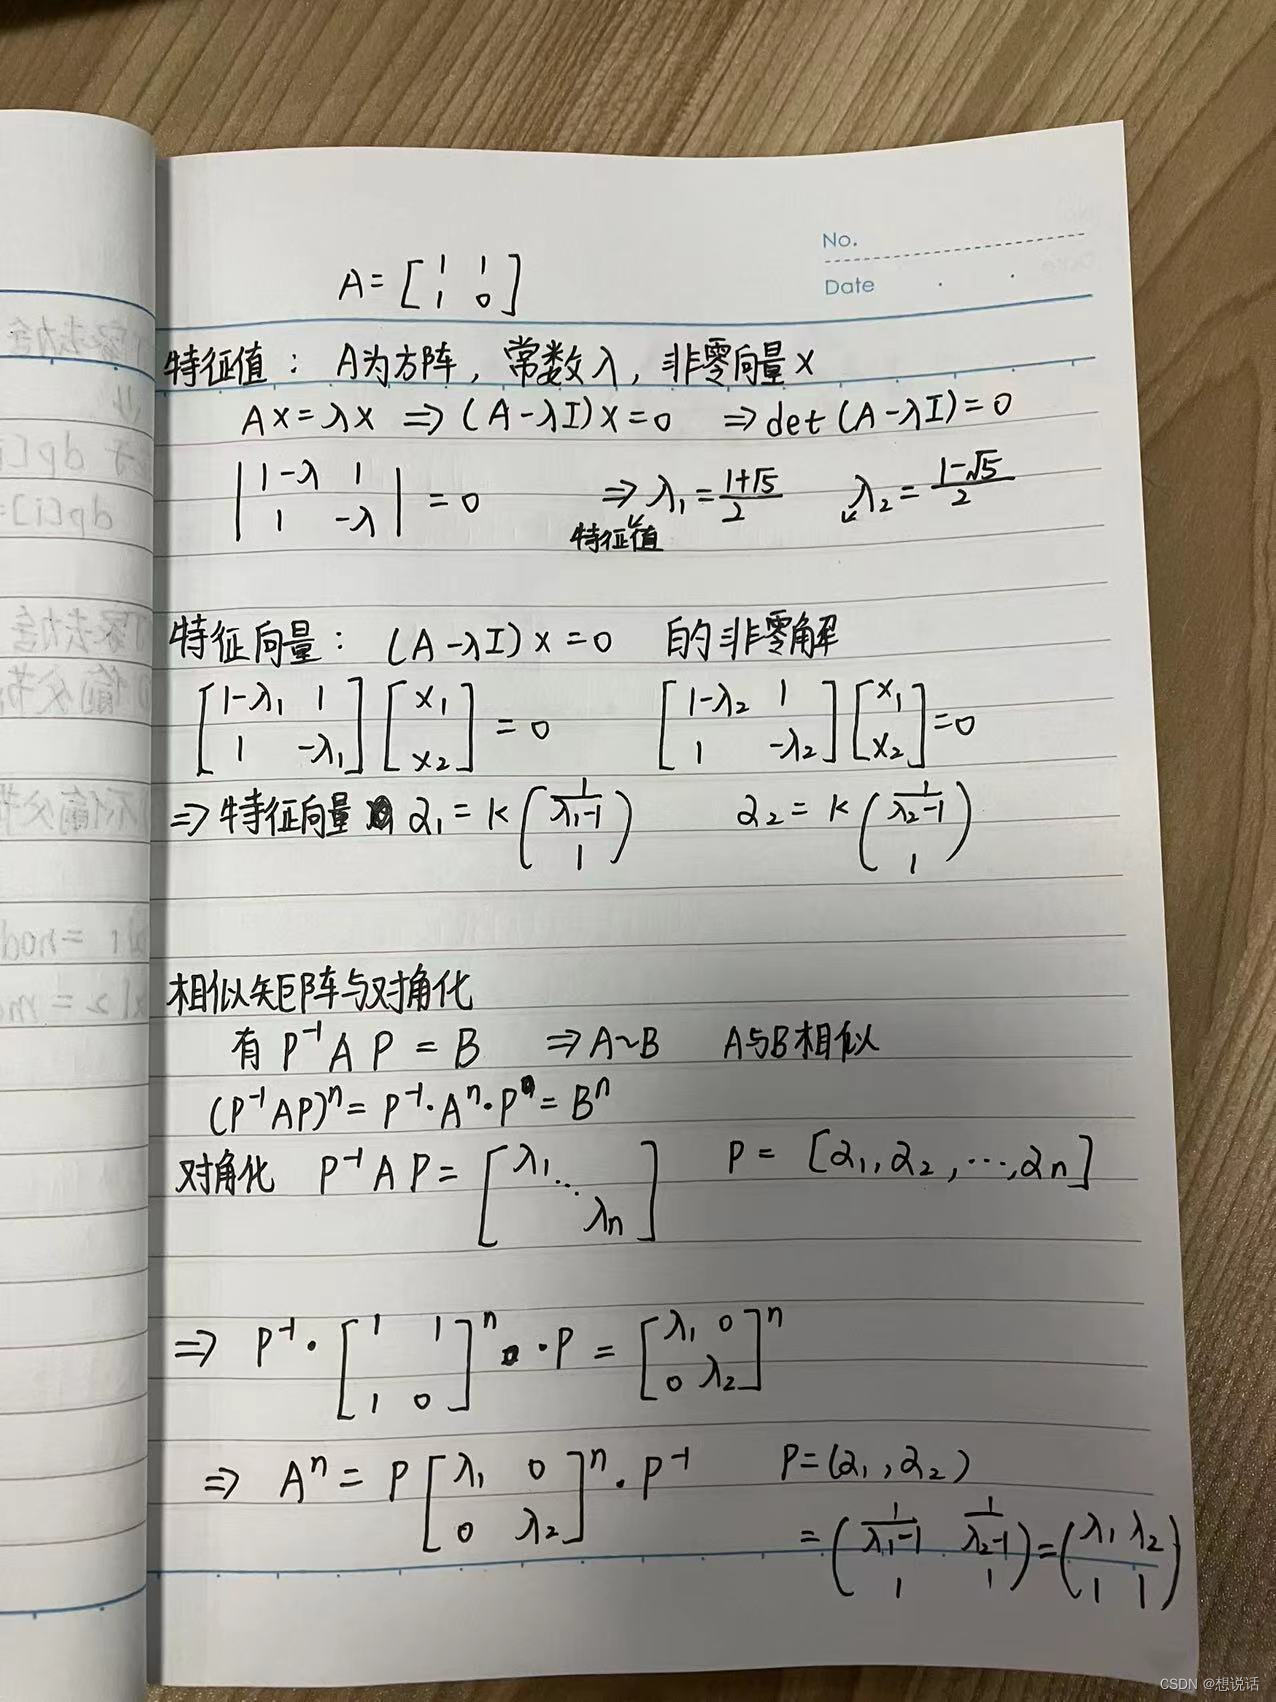 No.
Date
A = [1 1; 1 0]
特征值: A为方阵, 常数λ, 非零向量x
Ax=λx ⇒ (A-λI)x=0 ⇒ det(A-λI)=0
|1-λ 1; 1 -λ| = 0 ⇒ λ₁ = (1+√5)/2 λ₂ = (1-√5)/2
特征值
特征向量: (A-λI)x=0 的非零解
[1-λ₁ 1; 1 -λ₁][x₁; x₂] = 0 [1-λ₂ 1; 1 -λ₂][x₁; x₂] = 0
⇒ 特征向量 α₁ = k(1/(λ₁-1); 1) α₂ = k(1/(λ₂-1); 1)
相似矩阵与对角化
有 P⁻¹AP = B ⇒ A~B A与B相似
(P⁻¹AP)ⁿ = P⁻¹·Aⁿ·P = Bⁿ
对角化 P⁻¹AP = [λ₁ ⋱ λn] P = [α₁, α₂, ⋯, αn]
⇒ P⁻¹·[1 1; 1 0]ⁿ·P = [λ₁ 0; 0 λ₂]ⁿ
⇒ Aⁿ = P[λ₁ 0; 0 λ₂]ⁿ·P⁻¹ P=(α₁,α₂)
= (1/(λ₁-1) 1/(λ₂-1); 1 1) = (λ₁ λ₂; 1 1)
CSDN @想说话